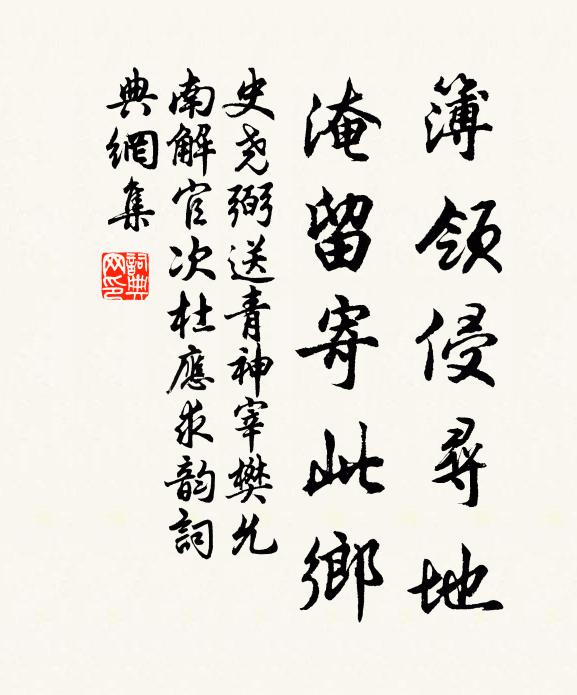 簿領侵尋地
淹留寄此鄉
史堯弼送青神宰樊允
南解官次杜應求韵詞
典網集
詞典网印